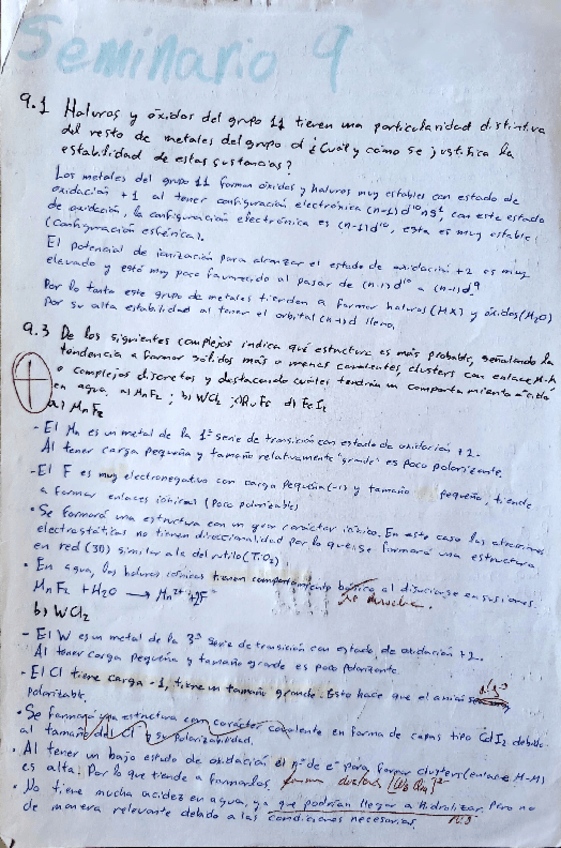 Seminario 9
9.1 Haluros y óxidos del grupo 11 tienen una particularidad distintiva
del resto de metales del grupo d ¿Cuál y cómo se justifica la
estabilidad de estas sustancias?
Los metales del grupo 11 forman óxidos y haluros muy estables con estado de
oxidación +1 al tener configuración electrónica (n-1)d¹⁰ns¹, con este estado
de oxidación, la configuración electrónica es (n-1)d¹⁰, esta es muy estable
(configuración esférica).
El potencial de ionización para alcanzar el estado de oxidación +2 es muy
elevado y está muy poco favorecido al pasar de (n-1)d¹⁰ a (n-1)d⁹
Por lo tanto este grupo de metales tienden a formar haluros (MX) y óxidos (M₂O)
por su alta estabilidad al tener el orbital (n-1)d lleno.
9.3 De los siguientes complejos indica qué estructura es más probable, señalando la
tendencia a formar sólidos más o menos covalentes, clusters con enlace M-M
o complejos discretos y destacando cuáles tendrán un comportamiento ácido
en agua. a) MnF₂; b) WCl₂; d) FeI₂
a) MnF₂
- El Mn es un metal de la 1ª serie de transición con estado de oxidación +2.
Al tener carga pequeña y tamaño relativamente "grande" es poco polarizante.
- El F es muy electronegativo con carga pequeña (-1) y tamaño pequeño, tiende
a formar enlaces iónicos (poco polarizable)
• Se formará una estructura con un gran carácter iónico. En este caso las atracciones
electrostáticas no tienen direccionalidad por lo que se formará una estructura
en red (3D) similar a la del rutilo (TiO₂)
• En agua, los haluros iónicos tienen comportamiento básico al disociarse en sus iones.
MnF₂ + H₂O → Mn²⁺ + 2F⁻ se disuelve.
b) WCl₂
- El W es un metal de la 3ª serie de transición con estado de oxidación +2.
Al tener carga pequeña y tamaño grande es poco polarizante.
- El Cl tiene carga -1, tiene un tamaño grande. Esto hace que el anión sea algo
polarizable.
• Se formará una estructura con carácter covalente en forma de capas tipo CdI₂ debido
al tamaño del Cl⁻ y su polarizabilidad.
• Al tener un bajo estado de oxidación el nº de e⁻ para formar clusters (enlace M-M)
es alta. Por lo que tiende a formarlos. forma clusters
• No tiene mucha acidez en agua, ya que podrían llegar a hidrolizar. Pero no
de manera relevante debido a las condiciones necesarias. no